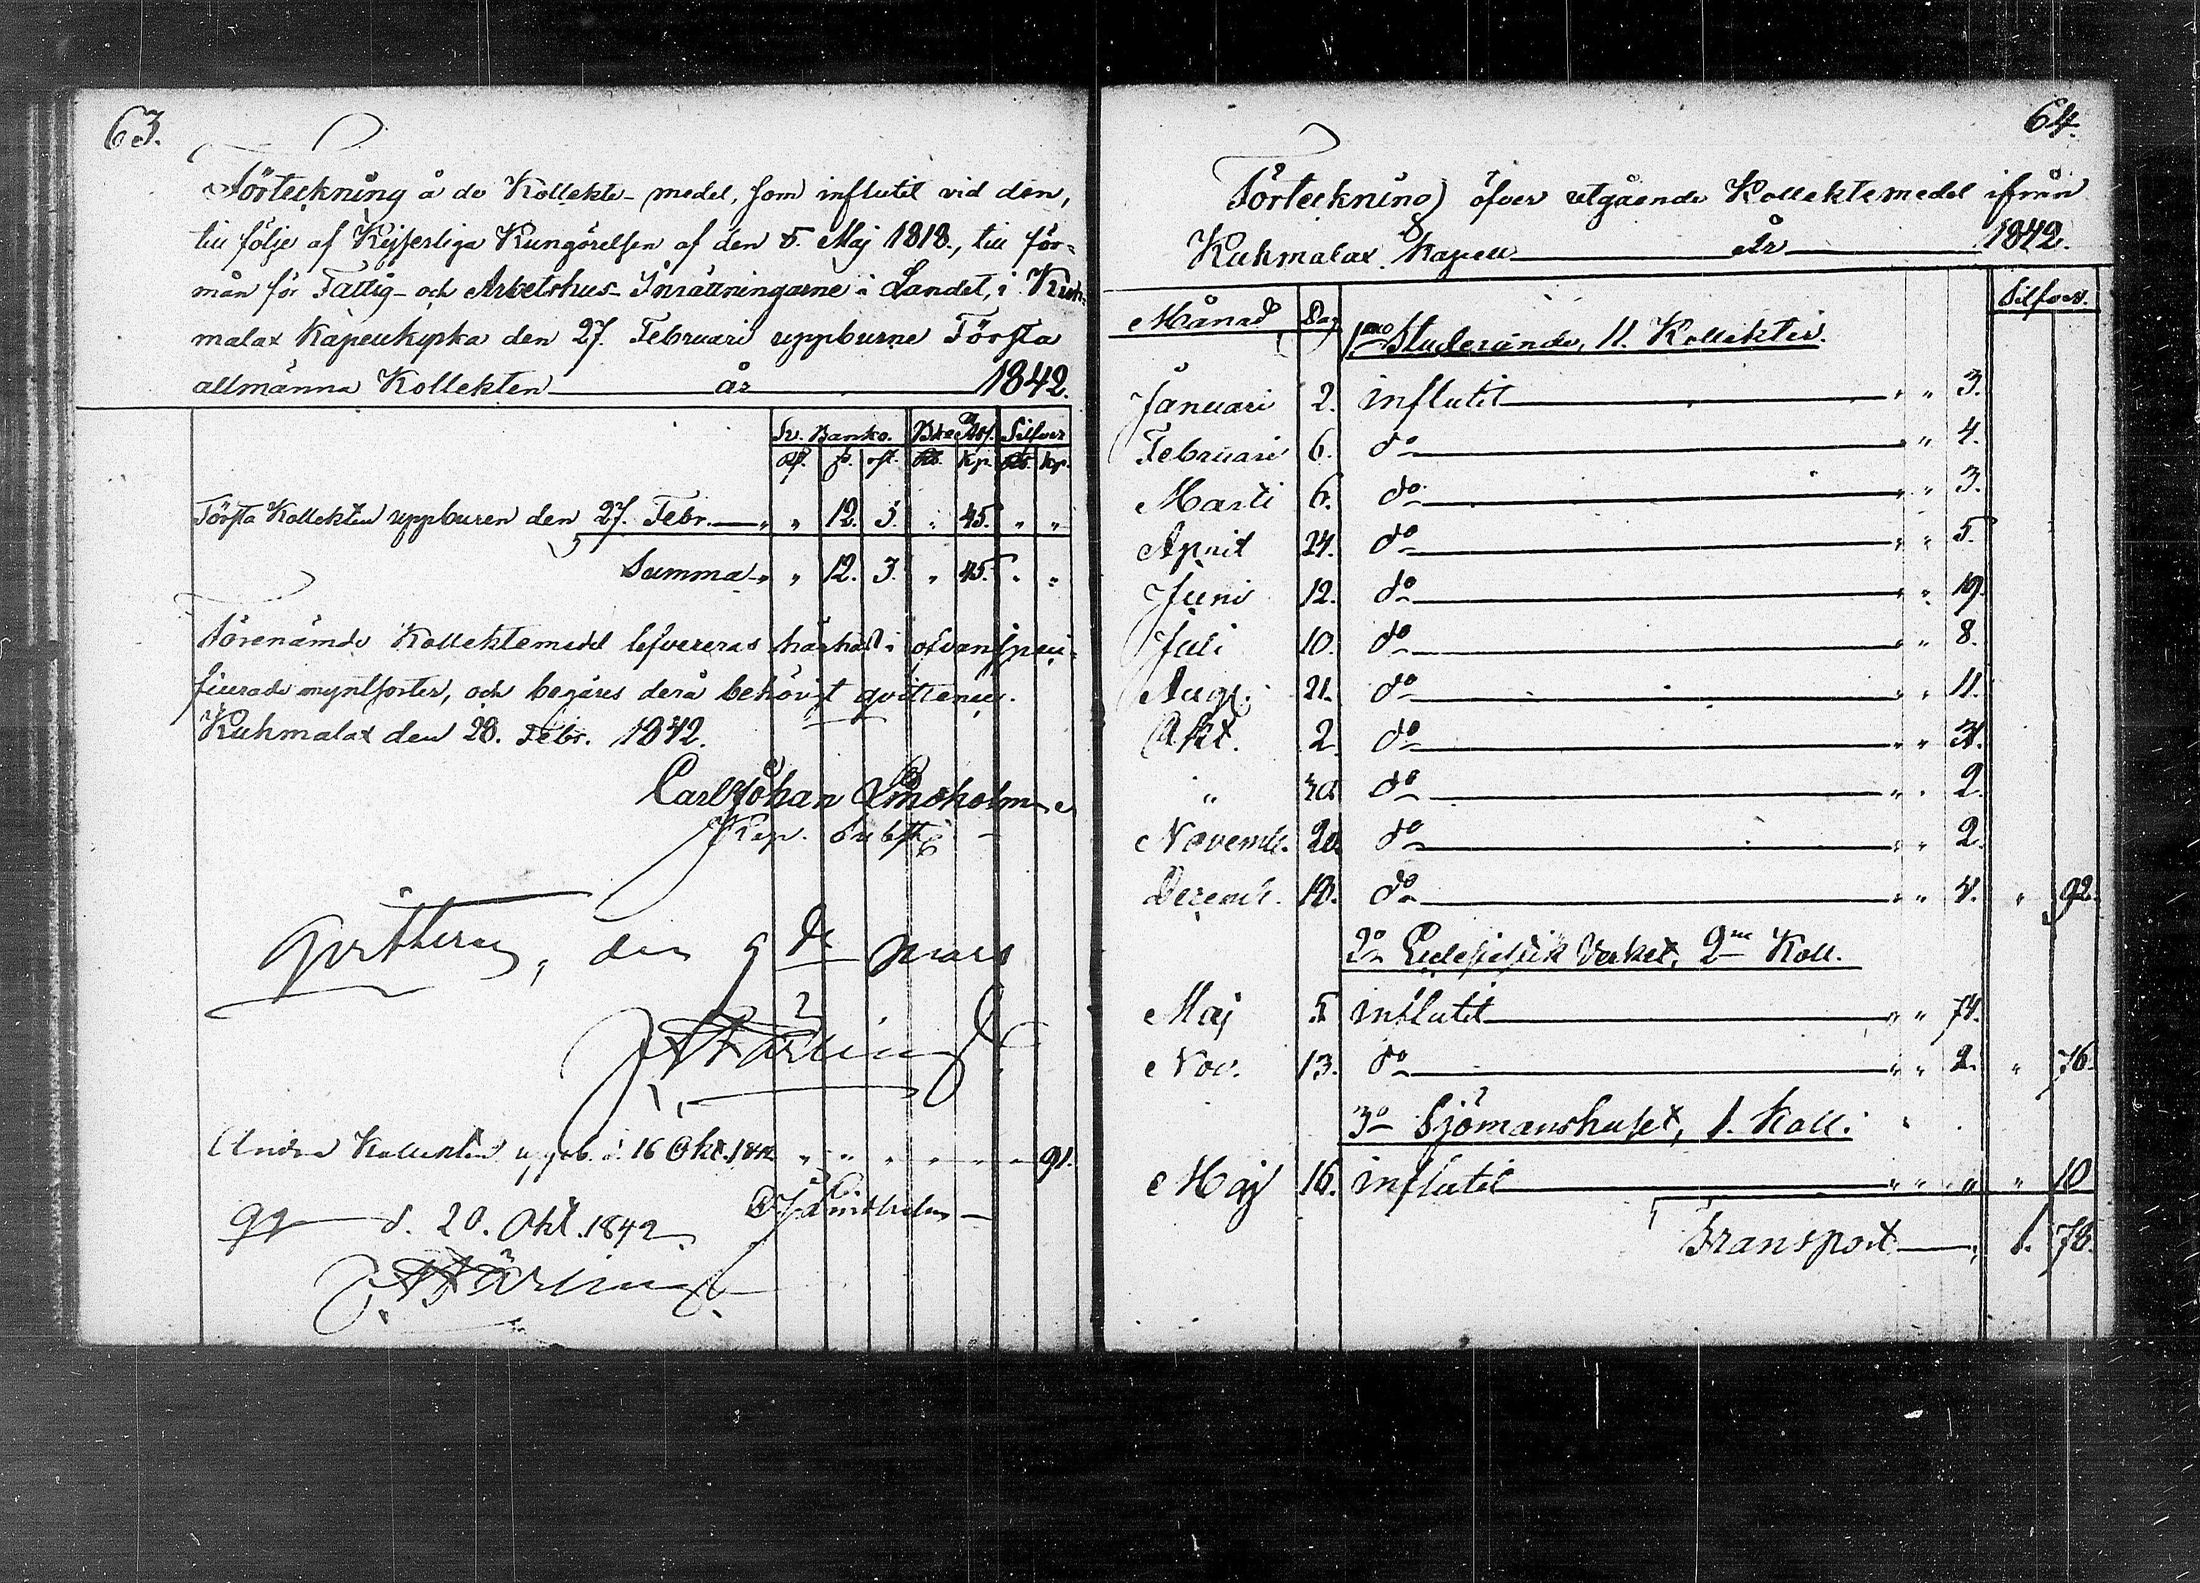 63.
Förteckning å de Kollekte-medel, som influtit vid den,
till följe af Kejserliga Kungörelsen af den 5. Maj 1818., till för=
mån för Fattig- och Arbetshus-Inrättningarne i Landet, i Kuh-
malax Kapellkyrka den 27. Februari uppburne Första
allmänna Kollekten år 1842.
Sv. Banko. Bko Ass. Silfver
Rf. s. rst. Rb. Kp. Rb. Kp.
Första Kollekten uppburen den 27. Febr. " " 12. 3. " 45. " "
Summa " " 12. 3. " 45. " "
Förenämde Kollektemedel lefvereras härhos i ofvanspeci-
ficerade myntsorter, och begäres derå behörigt qvittence.
Kuhmalax den 28. Febr. 1842.
Carl Johan Lindholm
Kap. Subst.
Qvitteras, den 9de Mars
J. Färling
Andra Kollekten uppb. d. 16 Okt. 1842 " " " " " " 91.
C. J. Lindholm
qq d. 20. Okt. 1842.
J. Färling
64.
Förteckning öfver utgående Kollektemedel ifrån
Kuhmalax Kapell år 1842.
Månad Dag 1mo Studerande, 11. Kollekter. Silfver.
Januari 2. influtit " " 3.
Februari 6. do " " 4.
Marti 6. do " " 3.
April 24. do " " 5.
Juni 12. do " " 19.
Juli 10. do " " 8.
Aug. 21. do " " 11.
Okt. 2 do " " 31.
" 30. do " " 2.
Novemb. 20. do " " 2.
Decemb. 18. do " " 4. " 92.
2o Ecclesiastik Verket, 2ne Koll.
Maj 5 influtit " " 74.
Nov. 13. do " " 2. " 76.
3o Sjömanshuset, 1. Koll:
Maj 16. influtit " " " " 10
Transport 1. 78.